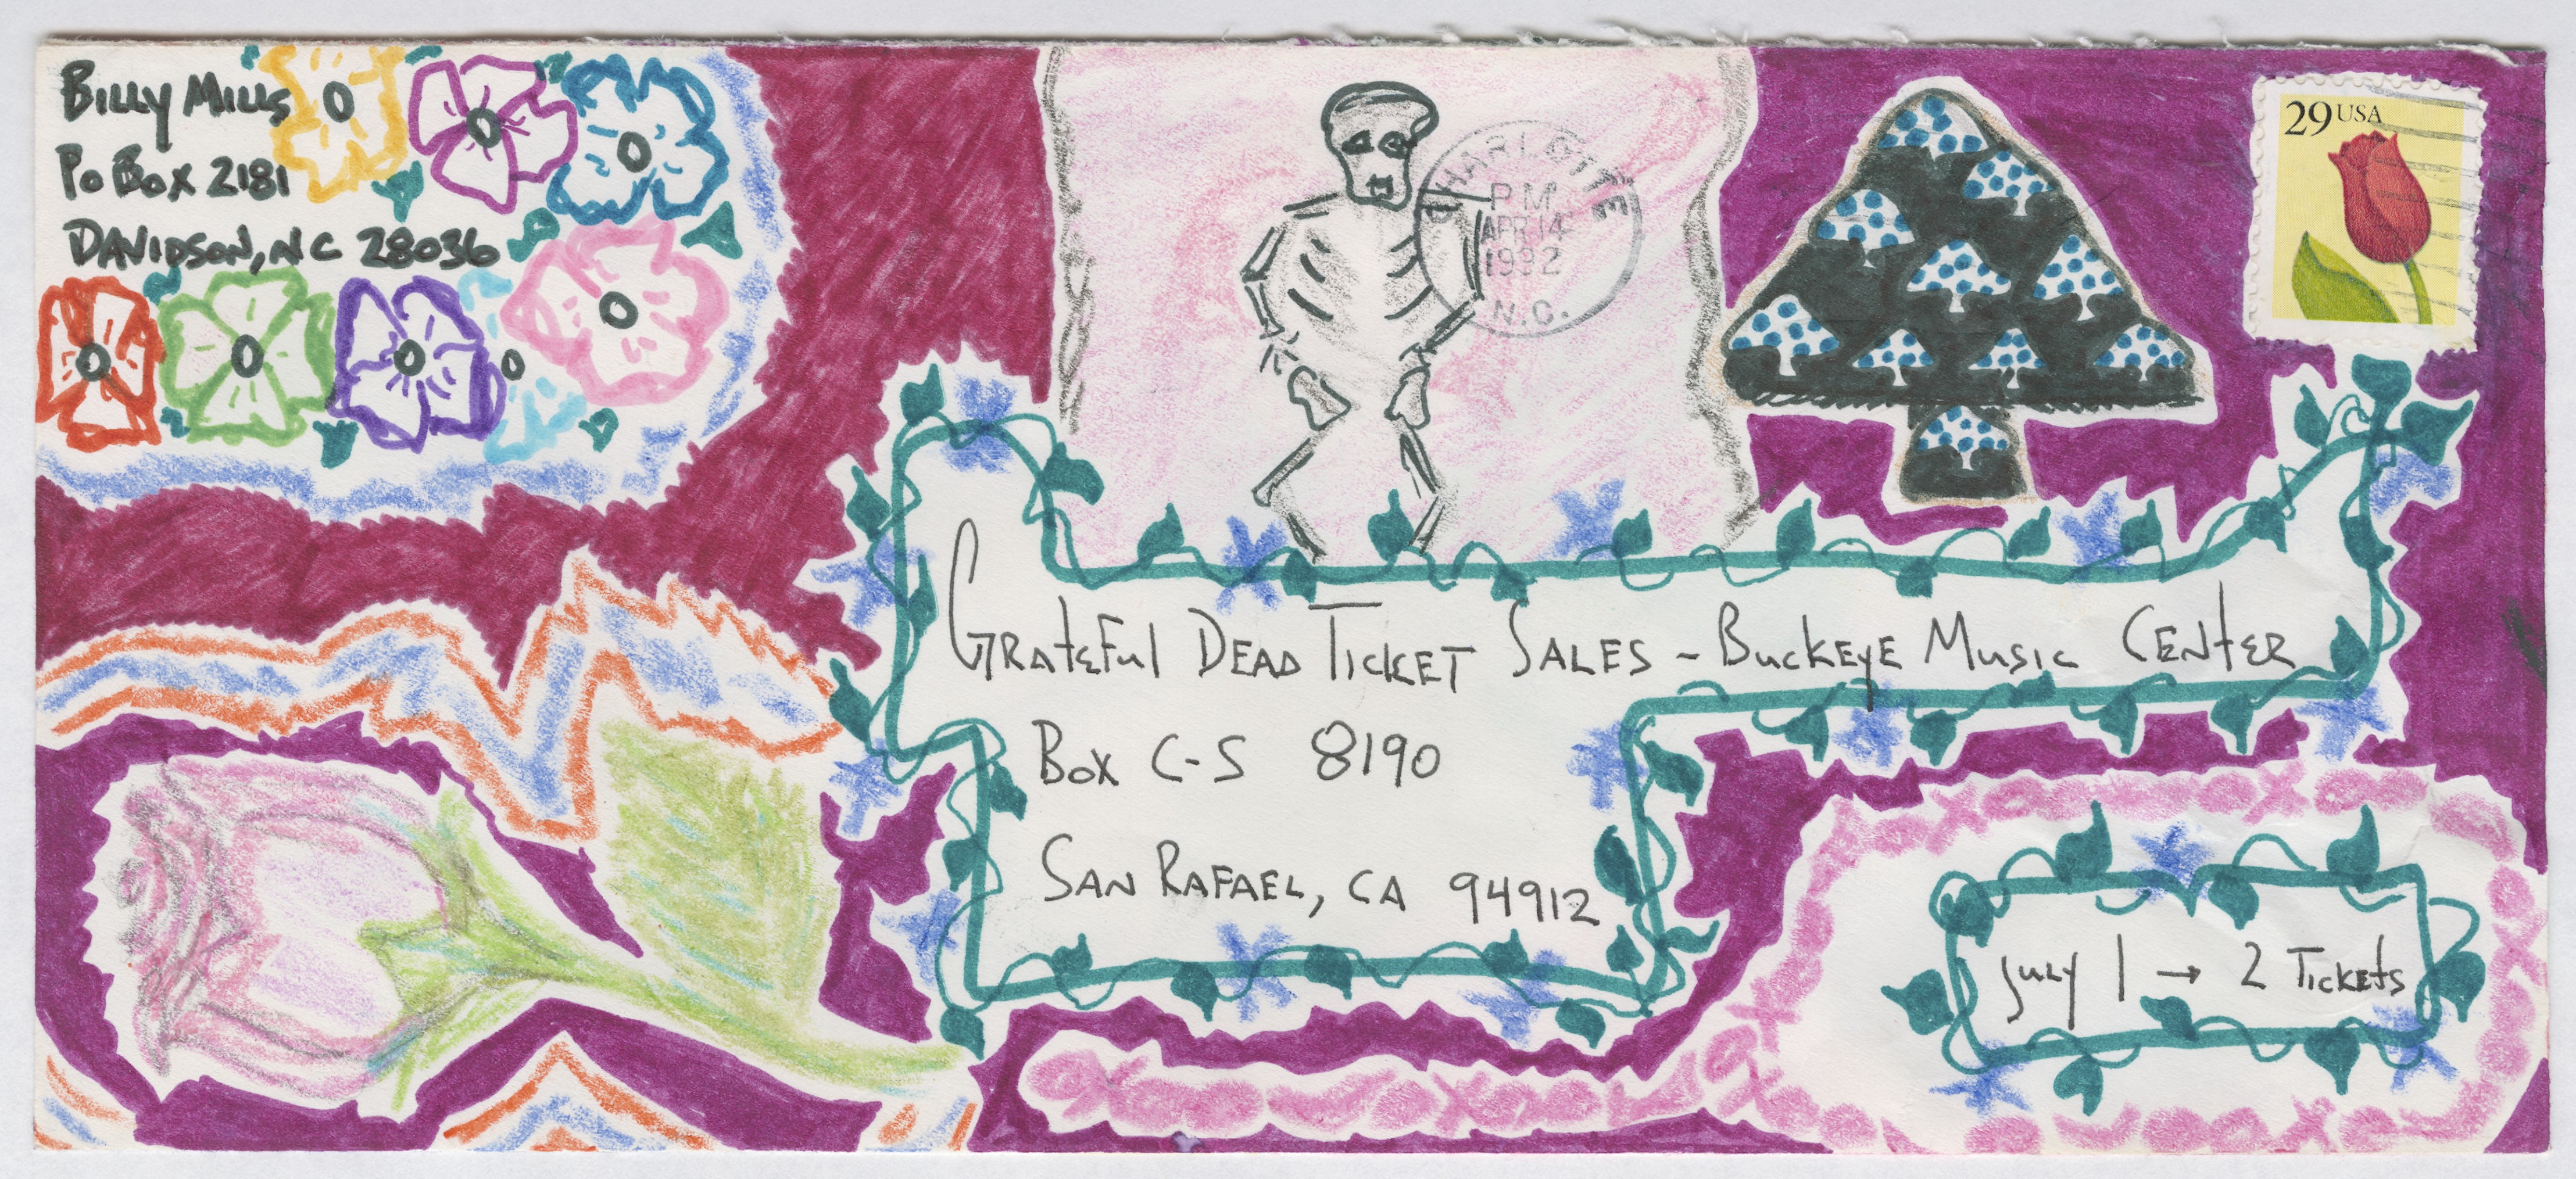 BILLY MILLS
PO BOX 2181
DAVIDSON, NC 28036
CHARLOTTE
PM
APR 14
1992
N.C.
29 USA
GRATEFUL DEAD TICKET SALES - BUCKEYE MUSIC CENTER
BOX C-S 8190
SAN RAFAEL, CA 94912
JULY 1 → 2 TICKETS